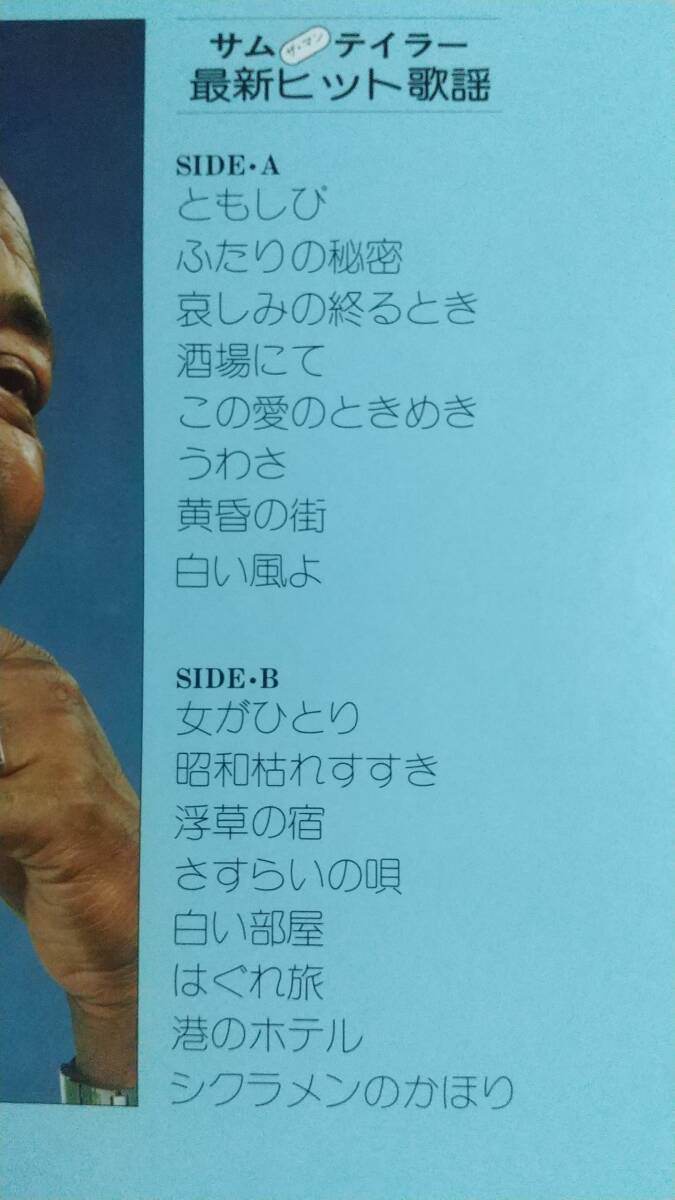 サム ザ・マン テイラー
最新ヒット歌謡
SIDE・A
ともしび
ふたりの秘密
哀しみの終るとき
酒場にて
この愛のときめき
うわさ
黄昏の街
白い風よ
SIDE・B
女がひとり
昭和枯れすすき
浮草の宿
さすらいの唄
白い部屋
はぐれ旅
港のホテル
シクラメンのかほり